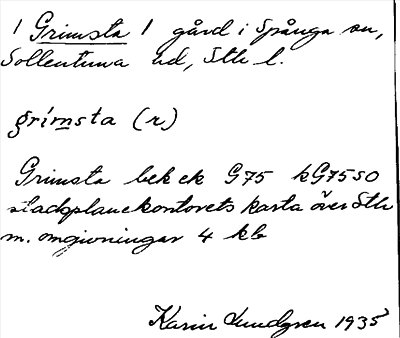 1 Grimsta 1 gård i Spånga sn,
Sollentuna hd, Sth l.
grímsta (r)
Grimsta bek ek G75 kG75SO
stadsplanekontorets karta över Sth
m. omgivningar 4 kb
Karin Lundgren 1935